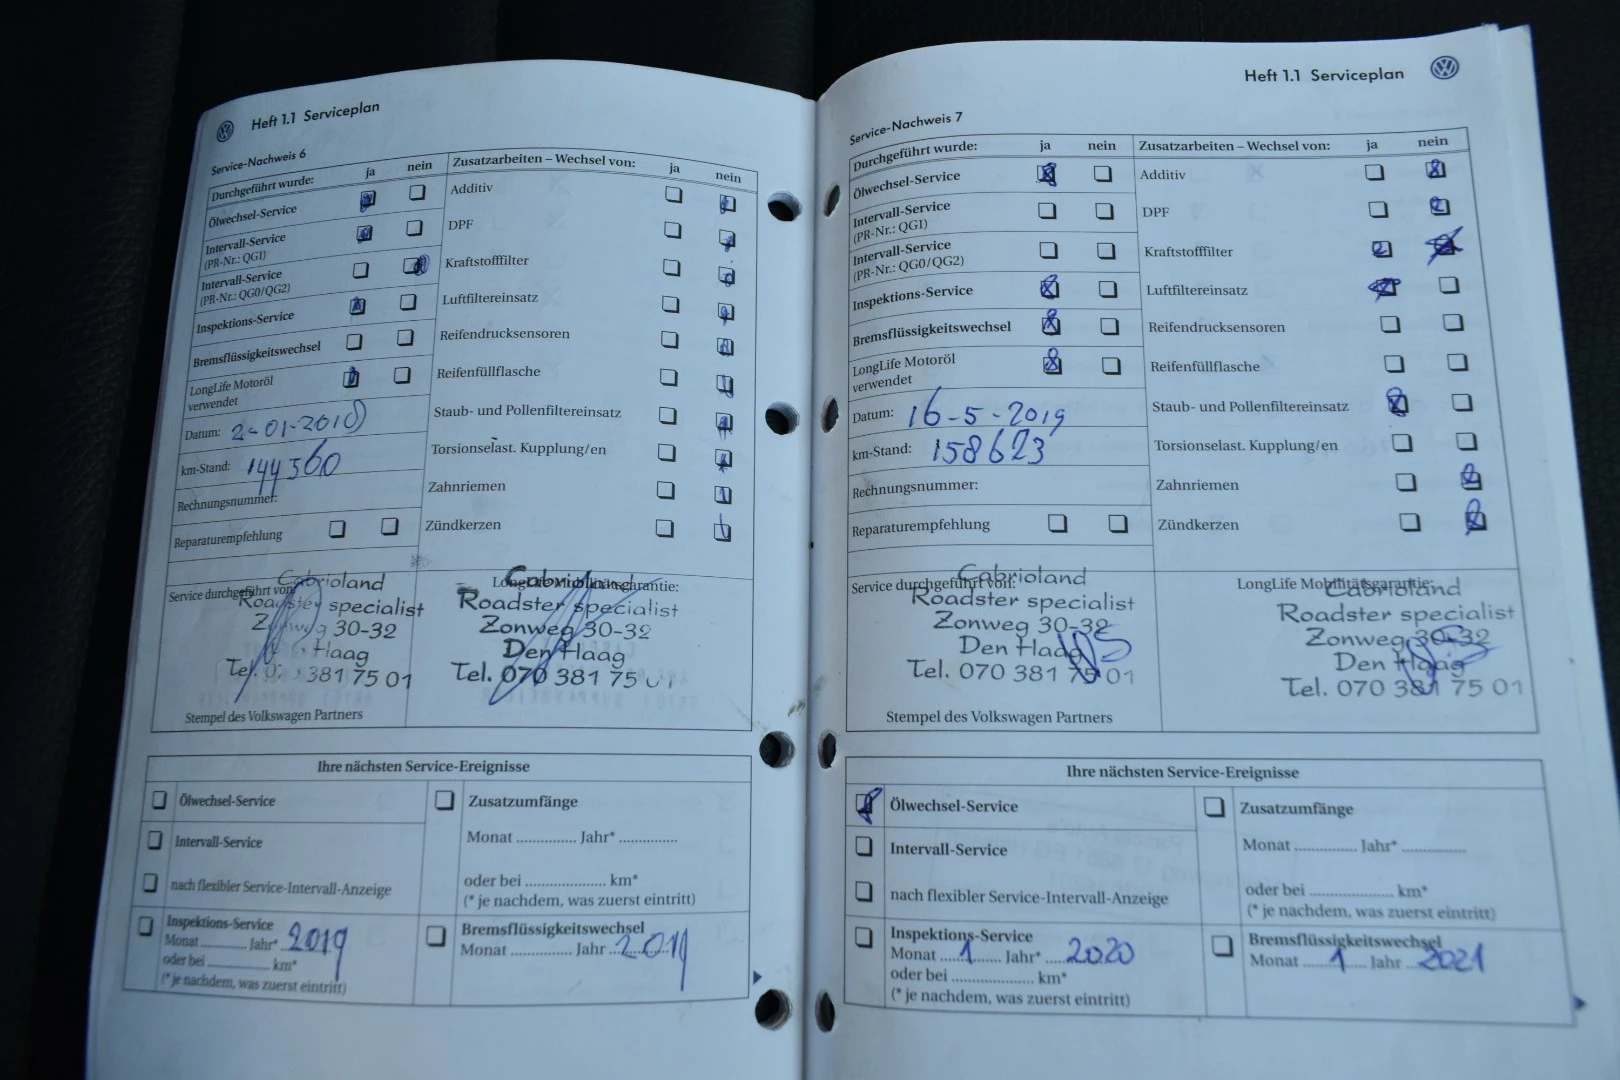 Heft 1.1 Serviceplan
Service-Nachweis 6
Durchgeführt wurde: ja nein
Ölwechsel-Service
Intervall-Service
(PR-Nr.: QG1)
Intervall-Service
(PR-Nr.: QG0/QG2)
Inspektions-Service
Bremsflüssigkeitswechsel
LongLife Motoröl
verwendet
Datum: 2-01-2018
km-Stand: 144560
Rechnungsnummer:
Reparaturempfehlung
Zusatzarbeiten – Wechsel von: ja nein
Additiv
DPF
Kraftstofffilter
Luftfiltereinsatz
Reifendrucksensoren
Reifenfüllflasche
Staub- und Pollenfiltereinsatz
Torsionselast. Kupplung/en
Zahnriemen
Zündkerzen
Service durchgeführt von:
Cabrioland
Roadster specialist
Zonweg 30-32
Haag
Tel. 381 75 01
Stempel des Volkswagen Partners
LongLife Mobilitätsgarantie:
Cabrioland
Roadster specialist
Zonweg 30-32
Den Haag
Tel. 070 381 75
Ihre nächsten Service-Ereignisse
Ölwechsel-Service
Intervall-Service
nach flexibler Service-Intervall-Anzeige
Zusatzumfänge
Monat ............ Jahr* ............
oder bei ................ km*
(* je nachdem, was zuerst eintritt)
Inspektions-Service
Monat ......... Jahr* 2019
oder bei ............ km*
(* je nachdem, was zuerst eintritt)
Bremsflüssigkeitswechsel
Monat ............ Jahr 2019
Heft 1.1 Serviceplan
Service-Nachweis 7
Durchgeführt wurde: ja nein
Ölwechsel-Service
Intervall-Service
(PR-Nr.: QG1)
Intervall-Service
(PR-Nr.: QG0/QG2)
Inspektions-Service
Bremsflüssigkeitswechsel
LongLife Motoröl
verwendet
Datum: 16-5-2019
km-Stand: 158623
Rechnungsnummer:
Reparaturempfehlung
Zusatzarbeiten – Wechsel von: ja nein
Additiv
DPF
Kraftstofffilter
Luftfiltereinsatz
Reifendrucksensoren
Reifenfüllflasche
Staub- und Pollenfiltereinsatz
Torsionselast. Kupplung/en
Zahnriemen
Zündkerzen
Service durchgeführt von:
Cabrioland
Roadster specialist
Zonweg 30-32
Den Haag
Tel. 070 381 75 01
Stempel des Volkswagen Partners
LongLife Mobilitätsgarantie:
Cabrioland
Roadster specialist
Zonweg 30-32
Den Haag
Tel. 070 381 75 01
Ihre nächsten Service-Ereignisse
Ölwechsel-Service
Intervall-Service
nach flexibler Service-Intervall-Anzeige
Zusatzumfänge
Monat ............ Jahr* ............
oder bei ................ km*
(* je nachdem, was zuerst eintritt)
Inspektions-Service
Monat 1 Jahr* 2020
oder bei ................ km*
(* je nachdem, was zuerst eintritt)
Bremsflüssigkeitswechsel
Monat 1 Jahr 2021